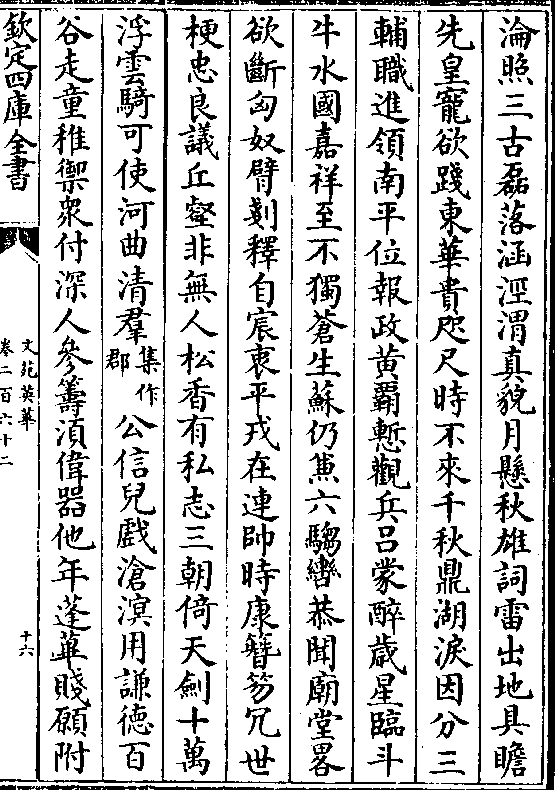 淪照三古磊落涵涇渭真貌月懸秋雄詞雷出地具瞻
先皇寵欲踐東華貴咫尺時不來千秋鼎湖淚因分三
輔職進領南平位報政黄覇慙觀兵吕蒙醉歳星臨斗
牛水國嘉祥至不獨蒼生蘇仍兼六騶轡恭聞廟堂畧
欲斷匈奴臂剗釋自宸衷平戎在連帥時康簪笏冗世
梗忠良議丘壑非無人松香有私志三朝倚天劍十萬
浮雲騎可使河曲清羣集作郡公信兒戲滄溟用謙德百
谷走童稚禦衆付深人參籌湏偉器他年蓬蓽賤願附
欽定四庫全書
文苑英華
卷二百六十二
十六